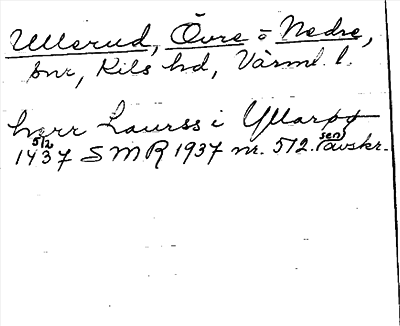 Ullerud, Övre o Nedre,
snr, Kils hd, Värml. l.
herr Laurss i Yllarpy
5/2 1437 SMR 1937 nr. 512. (sen) avskr.